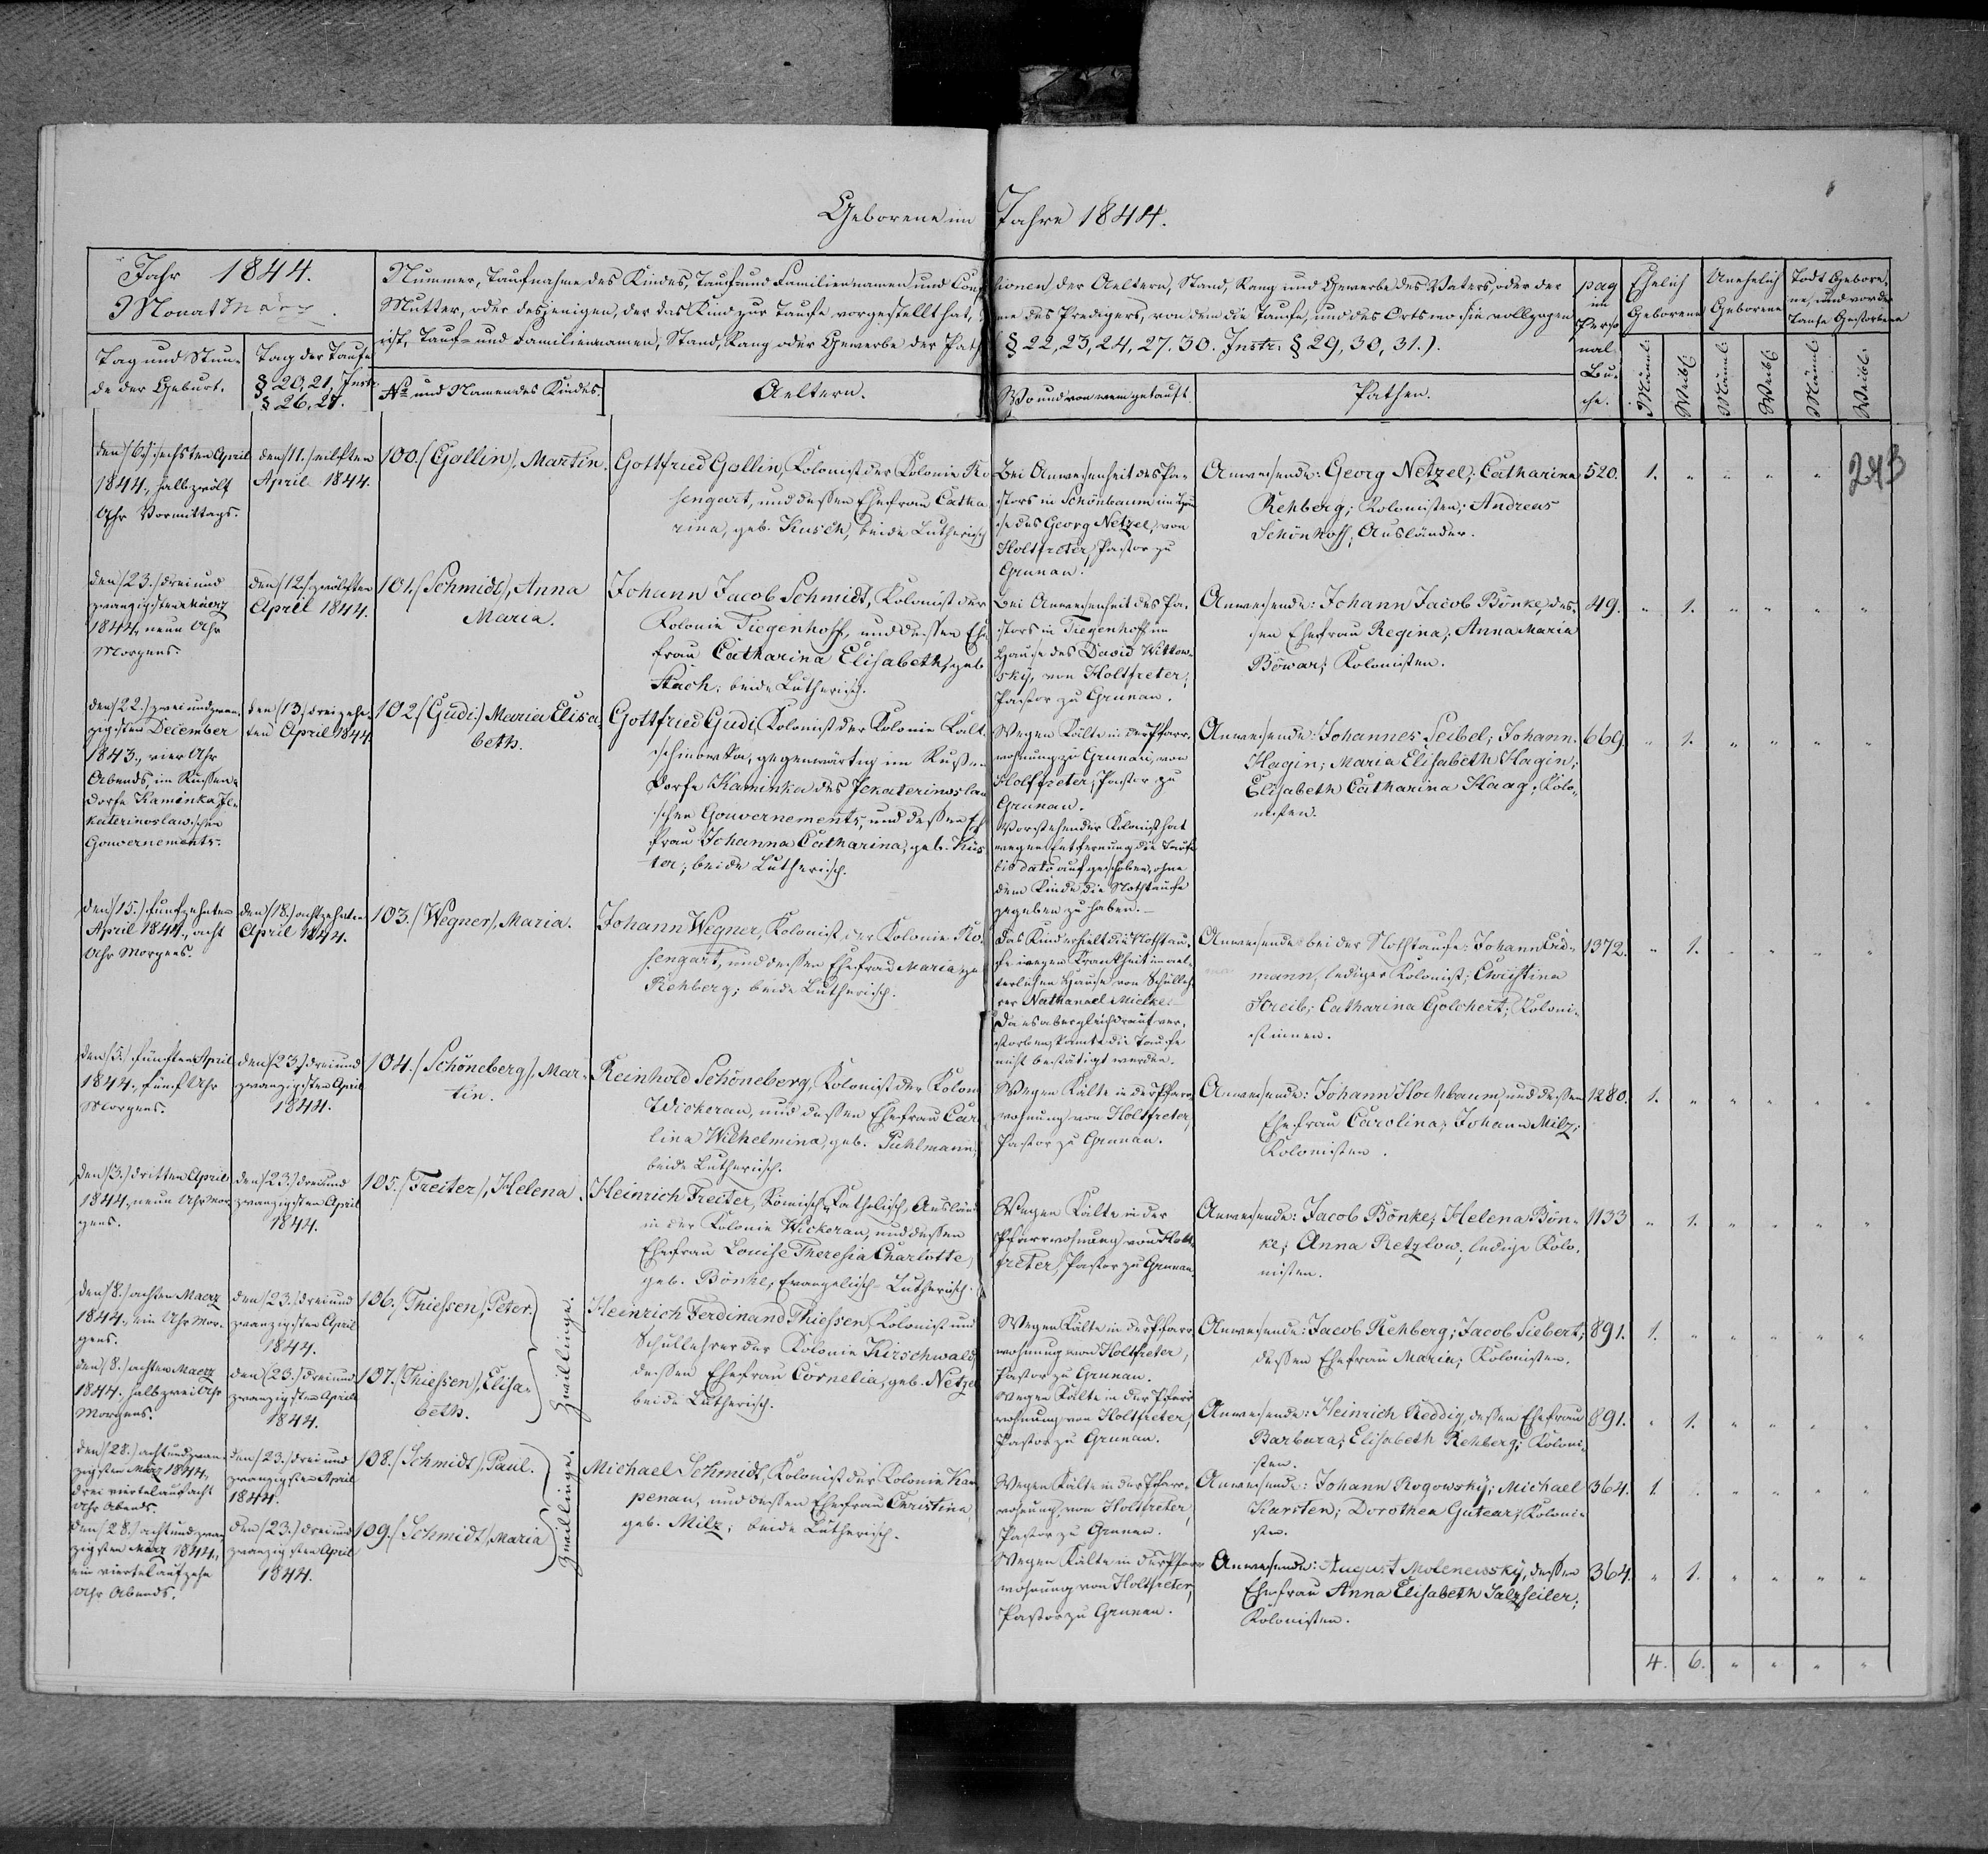 Geborene im Jahre 1844.
Jahr 1844.
Monat März.
Tag und Stun-
de der Geburt.
Tag der Taufe
§ 20, 21, Instr.
§ 26, 27.
Nummer, Taufname des Kindes, Tauf- und Familiennamen und Confessionen der Aeltern, Stand, Rang und Gewerbe des Vaters, oder der
Mutter, oder desjenigen, der das Kind zur Taufe vorgestellt hat, Name des Predigers, von dem die Taufe, und des Orts wo sie vollzogen
ist, Tauf- und Familiennamen, Stand, Rang oder Gewerbe der Pathen § 22, 23, 24, 27. 30. Instr. § 29, 30, 31.).
No und Namen des Kindes.
Aeltern.
Wo und von wem getauft.
Pathen.
pag
im
Perso-
nal-
Bu-
che.
Ehelich
Geborene
Unehelich
Geborene
Todt Gebore-
ne, und vor der
Taufe Gestorbene
Männl.
Weibl.
Männl.
Weibl.
Männl.
Weibl.
243
den (6.) sechsten April
1844., halb zwölf
Uhr Vormittags.
den (11.) eilften
April 1844.
100. (Gallin), Martin.
Gottfried Gallin, Kolonist der Kolonie Ro-
sengart, und dessen Ehefrau Catha-
rina, geb. Kusch, beide Lutherisch
Bei Anwesenheit des Pa-
stors in Schönbaum im Hau-
se des Georg Netzel, von
Holtfreter, Pastor zu
Grunau.
Anwesende: Georg Netzel; Catharina
Rehberg; Kolonisten; Andreas
Schönhoff, Ausländer.
520. 1. " " " "
den (23.) drei und
zwanzigsten Maerz
1844, neun Uhr
Morgens.
den (12.) zwölften
April 1844.
101. (Schmidt), Anna
Maria.
Johann Jacob Schmidt, Kolonist der
Kolonie Tiegenhoff, und dessen Ehe-
frau Catharina Elisabeth, geb.
Stach; beide Lutherisch.
Bei Anwesenheit des Pa-
stors in Tiegenhoff im
Hause des David Wittkow-
sky, von Holtfreter,
Pastor zu Grunau.
Anwesende: Johann Jacob Bönke, des-
sen Ehefrau Regina; Anna Maria
Böwar; Kolonisten.
49. " 1. " " " "
den (22.) zwei und zwan-
zigsten December
1843., vier Uhr
Abends, im Russen-
dorfe Kaminka Je-
katerinoslawschen
Gouvernements.
den (13.) dreizehn-
ten April 1844
102. (Gudi), Maria Elisa-
beth.
Gottfried Gudi, Kolonist der Kolonie Kalt-
schinowka, gegenwärtig im Russen-
dorfe Kaminka des Jekaterinoslaw-
schen Gouvernements, und dessen Ehe-
frau Johanna Catharina, geb. Küs-
ter; beide Lutherisch.
Wegen Kälte in der Pfarr-
wohnung zu Grunau, von
Holtfreter, Pastor zu
Grunau.
Vorstehender Kolonist hat
wegen Entfernung die Taufe
bis dato aufgeschoben, ohne
dem Kinde die Nothtaufe
gegeben zu haben. –
Anwesende: Johannes Seibel; Johann
Hagin; Maria Elisabeth Hagin;
Elisabeth Catharina Haag; Kolo-
nisten.
669. " 1. " " " "
den (15.) fünfzehnten
April 1844., acht
Uhr Morgens.
den (18.) achtzehnten
April 1844.
103. (Wegner), Maria.
Johann Wegner, Kolonist der Kolonie Ro-
sengart, und dessen Ehefrau Maria, geb.
Rehberg; beide Lutherisch.
Das Kind erhielt die Nothtau-
fe wegen Krankheit im ael-
terlichen Hause von Schulleh-
rer Nathanael Mielke. –
Da es aber gleich darauf ver-
storben, konnte die Taufe
nicht bestätigt werden.
Anwesende bei der Nothtaufe: Johann Erd-
mann, lediger Kolonist; Christina
Streib; Catharina Golchert; Koloni-
stinnen.
1372. " 1. " " " "
den (5.) fünften April
1844., fünf Uhr
Morgens.
den (23.) drei und
zwanzigsten April
1844.
104. (Schöneberg), Mar-
tin.
Reinhold Schöneberg, Kolonist der Kolonie
Wickerau, und dessen Ehefrau Caro-
lina Wilhelmina, geb. Puhlmann;
beide Lutherisch.
Wegen Kälte in der Pfarr-
wohnung von Holtfreter,
Pastor zu Grunau.
Anwesende: Johann Hochbaum, und dessen
Ehefrau Carolina; Johann Milz;
Kolonisten.
1280. 1. " " " " "
den (3.) dritten April
1844., neun Uhr Mor-
gens.
den (23.) drei und
zwanzigsten April
1844.
105. (Treiter), Helena.
Heinrich Treiter, Römisch-Katholisch, Ausländer
in der Kolonie Wickerau, und dessen
Ehefrau Louise Theresia Charlotte,
geb. Bönke, Evangelisch-Lutherisch.
Wegen Kälte in der
Pfarrwohnung von Holt-
freter, Pastor zu Grunau.
Anwesende: Jacob Bönke; Helena Bön-
ke; Anna Retzlow, ledige Kolo-
nisten.
1133 " 1. " " " "
den (8.) achten Maerz
1844., ein Uhr Mor-
gens.
den (23.) drei und
zwanzigsten April
1844.
106. (Thiessen), Peter.
Zwillinge.
Heinrich Ferdinand Thiessen, Kolonist und
Schullehrer der Kolonie Kirschwald,
dessen Ehefrau Cornelia, geb. Netzel
beide Lutherisch.
Wegen Kälte in der Pfarr-
wohnung von Holtfreter,
Pastor zu Grunau.
Anwesende: Jacob Rehberg; Jacob Siebert,
dessen Ehefrau Maria; Kolonisten.
891. 1. " " " " "
den (8.) achten Maerz
1844., halb zwei Uhr
Morgens.
den (23.) drei und
zwanzigsten April
1844.
107. (Thiessen), Elisa-
beth.
Wegen Kälte in der Pfarr-
wohnung von Holtfreter,
Pastor zu Grunau.
Anwesende: Heinrich Reddig, dessen Ehefrau
Barbara; Elisabeth Rehberg; Koloni-
sten.
891. " 1. " " " "
den (28.) acht und zwan-
zigsten März 1844,
drei viertel auf acht
Uhr Abends.
den (23.) drei und
zwanzigsten April
1844.
108. (Schmidt), Paul.
Zwillinge.
Michael Schmidt, Kolonist der Kolonie Kam-
penau, und dessen Ehefrau Christina,
geb. Milz; beide Lutherisch.
Wegen Kälte in der Pfarr-
wohnung, von Holtfreter,
Pastor zu Grunau.
Anwesende: Johann Rogowsky; Michael
Karsten; Dorothea Gutear; Koloni-
sten.
364. 1. " " " " "
den (28.) acht und zwan-
zigsten März 1844.,
ein viertel auf zehn
Uhr Abends.
den (23.) drei und
zwanzigsten April
1844.
109. (Schmidt), Maria
Wegen Kälte in der Pfarr-
wohnung von Holtfreter,
Pastor zu Grunau.
Anwesende: August Molenewsky, dessen
Ehefrau Anna Elisabeth Salzseiler;
Kolonisten.
364. " 1. " " " "
4. 6. " " " "